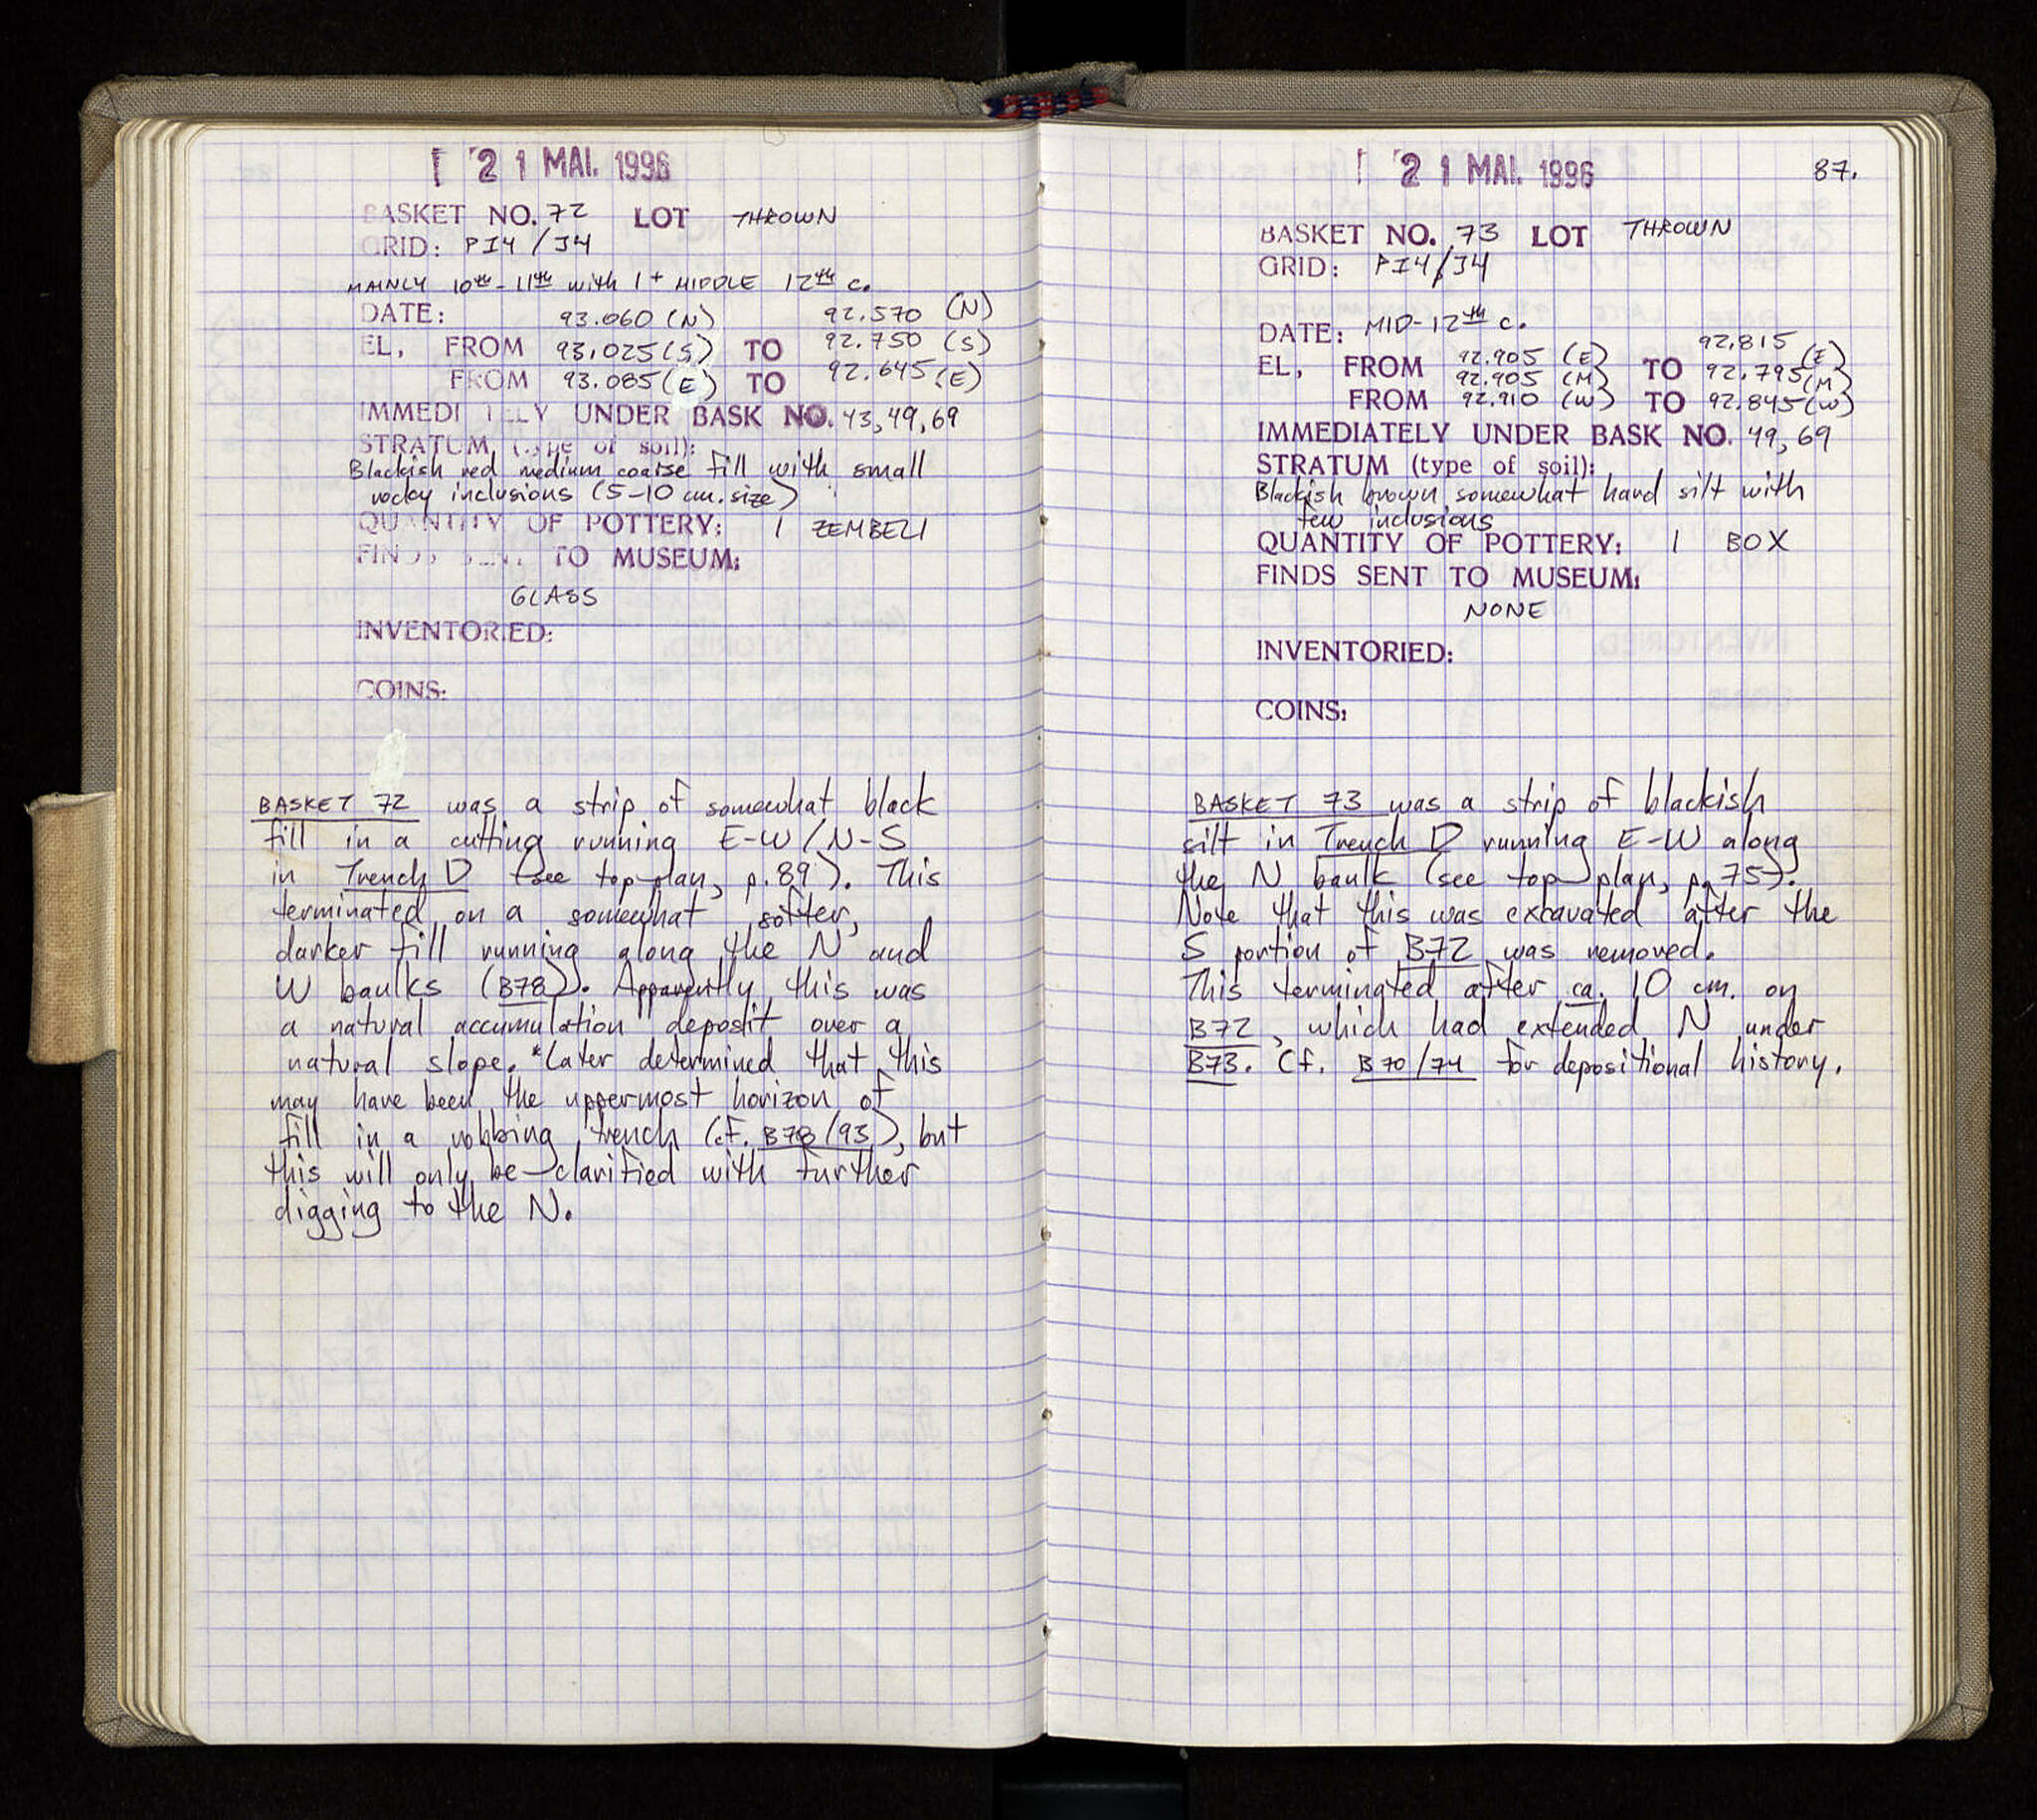 21 MAI. 1996
BASKET NO. 72 LOT THROWN
GRID: PI4/J4
MAINLY 10th-11th with 1+ MIDDLE 12th c.
DATE: 93.060 (N) 92.570 (N)
EL, FROM 93.025 (S) TO 92.750 (S)
FROM 93.085 (E) TO 92.645 (E)
IMMEDI TELY UNDER BASK NO. 43, 49, 69
STRATUM (type of soil):
Blackish red medium coarse fill with small
rocky inclusions (5-10 cm. size)
QUANTITY OF POTTERY: 1 ZEMBELI
FINDS SENT TO MUSEUM:
GLASS
INVENTORIED:
COINS:
BASKET 72 was a strip of somewhat black
fill in a cutting running E-W/N-S
in Trench D (see top plan, p. 89). This
terminated on a somewhat softer,
darker fill running along the N and
W baulks (B78). Apparently this was
a natural accumulation deposit over a
natural slope. *Later determined that this
may have been the uppermost horizon of
fill in a robbing trench (cf. B78/93), but
this will only be clarified with further
digging to the N.
21 MAI. 1996
87.
BASKET NO. 73 LOT THROWN
GRID: PI4/J4
DATE: MID-12th c.
92.815
EL, FROM 92.905 (E) TO (E)
92.905 (M) 92.795 (M)
FROM 92.910 (W) TO 92.845 (W)
IMMEDIATELY UNDER BASK NO. 49, 69
STRATUM (type of soil):
Blackish brown somewhat hard silt with
few inclusions
QUANTITY OF POTTERY: 1 BOX
FINDS SENT TO MUSEUM:
NONE
INVENTORIED:
COINS:
BASKET 73 was a strip of blackish
silt in Trench D running E-W along
the N baulk (see top plan, p. 75).
Note that this was excavated after the
S portion of B72 was removed.
This terminated after ca. 10 cm. on
B72, which had extended N under
B73. Cf. B70/74 for depositional history.